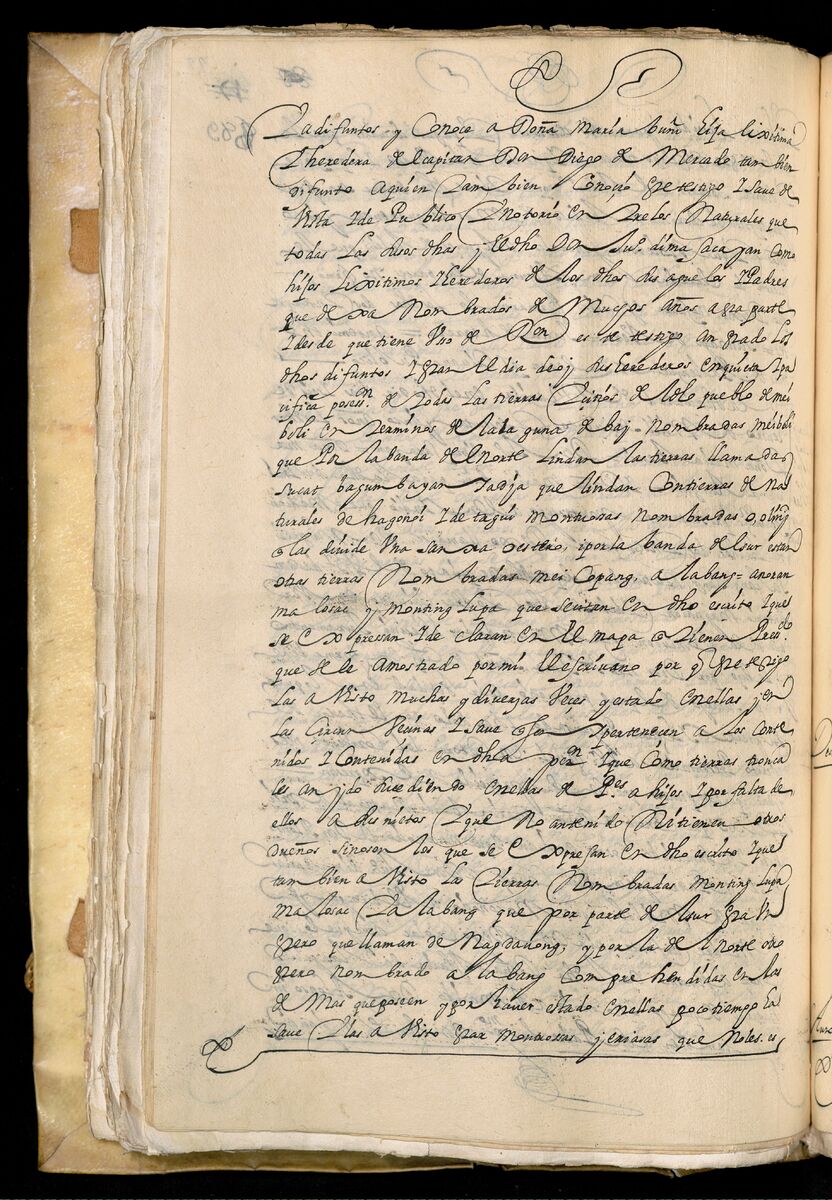 Ya difuntos y Conoçe a Doña María buñi hija lixitima
Y heredera del capitan Don Diego de Mercado tan bien
difunto aquien tambien Conoçio este testigo I saue de
Vista I de Publico Y notorio entre los Naturales que
todas las suso dhas y el dho Don Juº. dimasacayan como
hijos Lixitimos I herederos de los dhos sus aguelos I Padres
que dexa nombrados de Muchos años a esta parte
I desde que tiene Vso de Ron este testigo an estado los
dhos difuntos I estan el dia de oi sus herederos en quieta I pa
çifica posesn. de todas las tierras de dho pueblo de mei
boli en terminos de la laguna de bai nombradas meiboli
que Por la banda del norte lindan las tierras llamadas
sucat bagumbayan tadja que lindan con tierras de na
turales de hagonoi I de tagui montuosas nombradas
q las diuide Vna sanxa o estero, i por la banda del sur estan
otras tierras Nombradas mei Copang, alabang anoran
malosac y monting Lupa que se citan en dho escrito I que
se Expressan I declaran en el mapa q tienen Presdo.
que se le a mostrado por mi el escriuano por q este testigo
las a Visto muchas y diuersas Veces y estado en ellas y en
las Circun Veçinas I saue q son I pertenecen a los conte
nidos I Contenidas en dha petn. I que como tierras tronca
les an ido subçediendo en ellas de Pes. a hijos I por falta de
ellos a sus nietos I que no an tenido Ni tienen otros
dueños sino son los que se Expresan en dho escrito I que
tambien a Visto las tierras Nombradas monting Lupa
malosac I alabang que por parte del sur esta Vn
estero que llaman de Nagdauong, y por la del norte otro
estero nombrado alabang comprehendidas en las
demas que poseen y por hauer estado en ellas poco tiempo ha
saue I las a Visto estar montuosas y eriasas que no les es